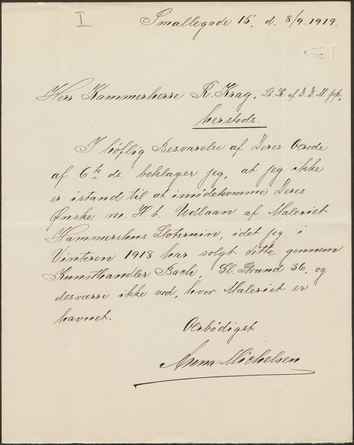 I
Smallegade 15. d. 8/9. 1919.
Herr Kammerherre R. Krag,
herstede
I høflig Besvarelse af Deres Ærede
af 6te ds beklager jeg, at jeg ikke
er istand til at imødekomme Deres
Ønske m. H. t. Udlaan af Maleriet
Hammershus Slotsruin, idet jeg i
Vinteren 1918 har solgt dette gennem
Kunsthandler Bache, Gl. Strand 36, og
desværre ikke ved, hvor Maleriet er
havnet.
Ærbødigst
Anna Michelsen